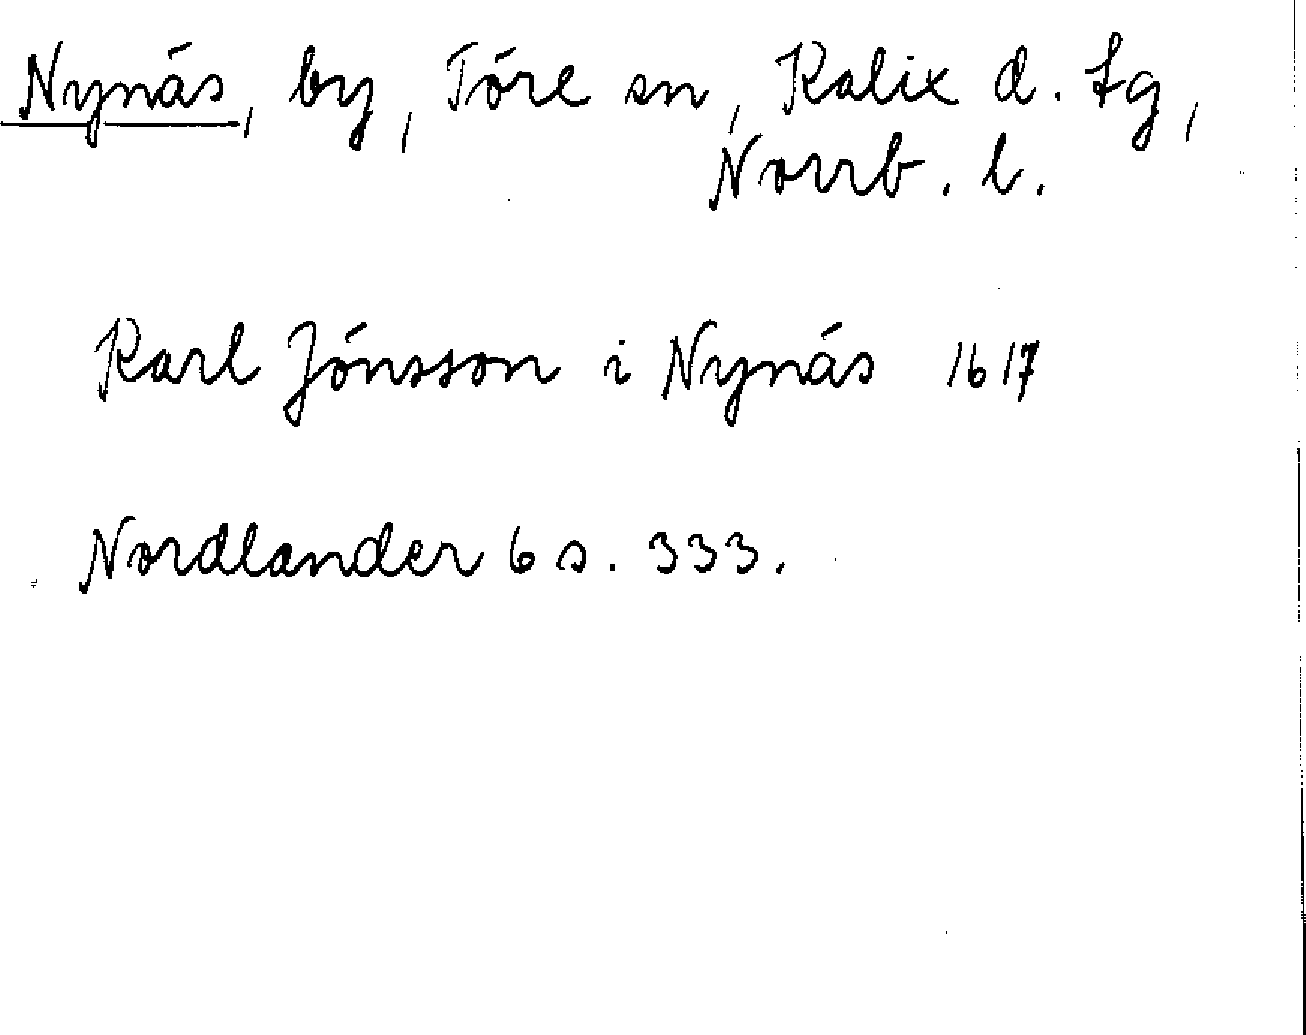 Nynäs, by, Töre sn, Kalix d. tg,
Norrb. l.
Karl Jönsson i Nynäs 1617
Nordlander 6 s. 333.